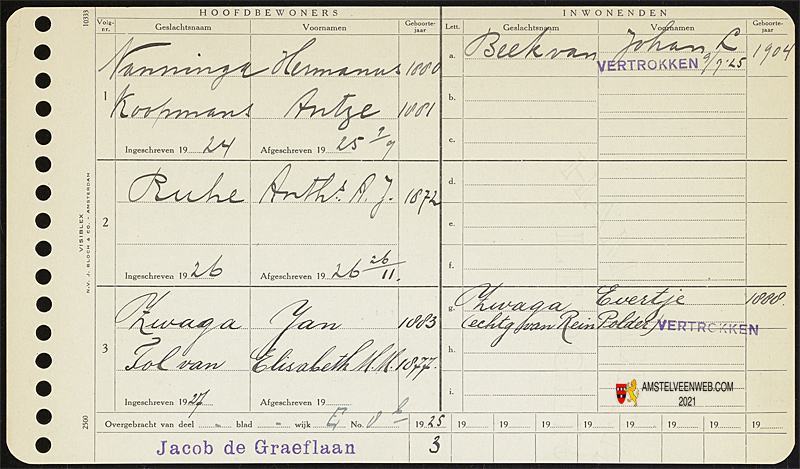 HOOFDBEWONERS
INWONENDEN
10333
Volg-nr.
Geslachtsnaam
Voornamen
Geboorte-jaar
Lett.
Geslachtsnaam
Voornamen
Geboorte-jaar
1
Nanninga Hermanus 1880
Koopmans Antze 1881
Ingeschreven 19 24 Afgeschreven 19 25 2/9
2
Ruhe Anth.s A. J. 1872
Ingeschreven 19 26 Afgeschreven 19 26 26/11.
3
Zwaga Jan 1883
Tol van Elisabeth M. M. 1877.
Ingeschreven 19 27 Afgeschreven 19
a. Beek van Johan L 1904
VERTROKKEN 9/9 '25
b.
c.
d.
e.
f.
g. Zwaga Evertje 1888.
(echtg van Rein Polder) VERTROKKEN
h.
i.
VISIBLEX
N.V. J. BLOCH & CO. - AMSTERDAM
2560
AMSTELVEENWEB.COM
2021
Overgebracht van deel - blad - wijk E No. 8 19 25 19 19 19 19 19 19 19
Jacob de Graeflaan 3